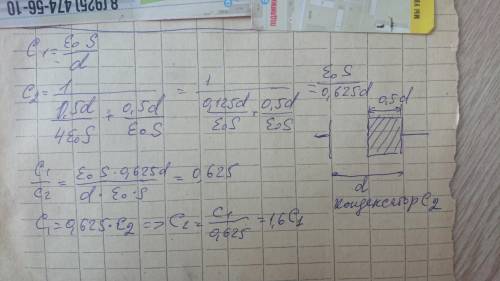 8 (925) 474-56-10
C₁ = ε₀S/d
C₂ = 1/(0,5d/4ε₀S + 0,5d/ε₀S) = 1/(0,125d/ε₀S + 0,5d/ε₀S) = ε₀S/0,625d
0,5d
C₁/C₂ = ε₀S·0,625d/d·ε₀·S = 0,625
d
конденсатор C₂
C₁ = 0,625·C₂ => C₂ = C₁/0,625 = 1,6C₁